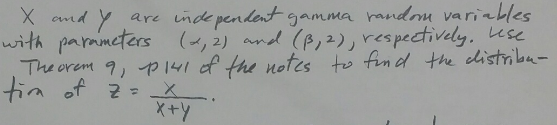 X and Y are independent gamma random variables
with parameters (α, 2) and (β, 2), respectively. Use
Theorem 9, p 141 of the notes to find the distribu-
tion of Z = X/(X+Y).